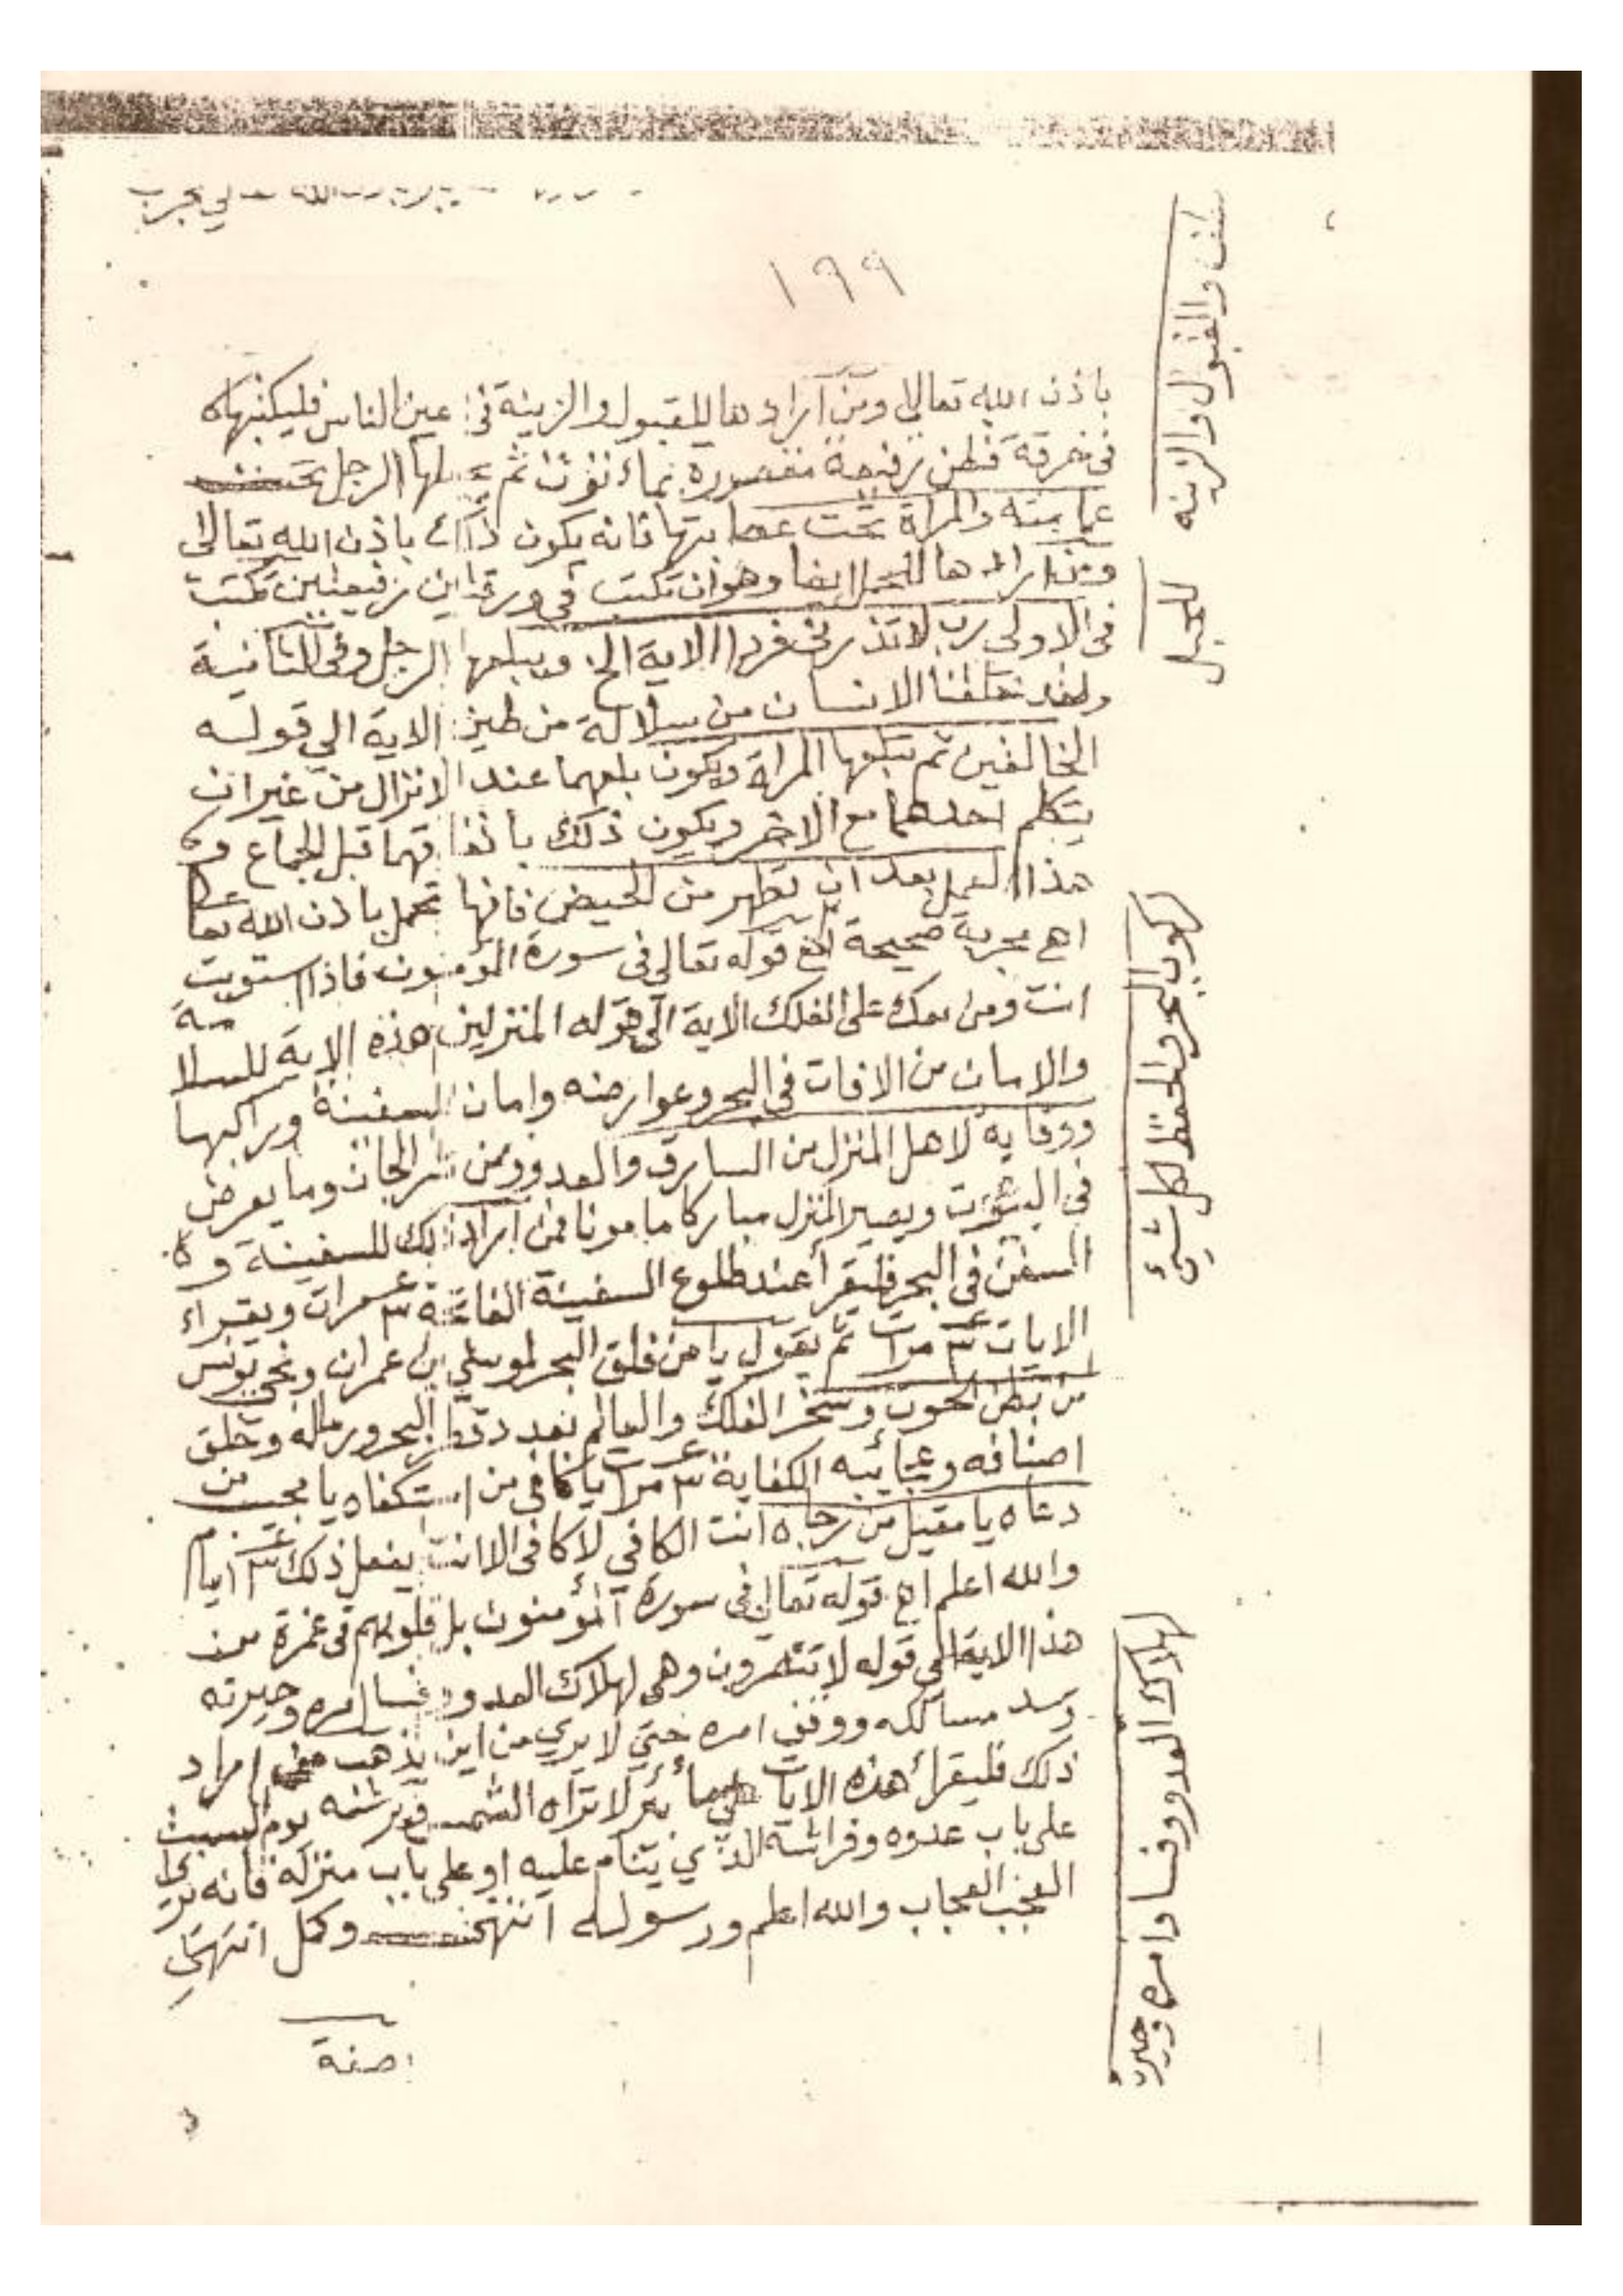 لي مجرب
١٩٩
باذن الله تعالى ومن اراد ها للقبول والزينة في عين الناس فليكتبها
في خرقة قطن رفيعة مقصورة بماء ثم يحملها الرجل تحت
عمامته والمراة تحت عصابتها فانه يكون ذالك باذن الله تعالى
ومن اراد ها للحمل ايضا وهو ان تكتب في ورقتين رفيعتين تكتب
في الاولى رب لا تذرني فردا الاية الخ ويبلعها الرجل وفي الثانية
ولقد خلقنا الانسان من سلالة من طين الاية الي قوله
الخالقين ثم تبلعها المراة ويكون بلعهما عند الانزال من غير ان
يتكلم احدهما مع الاخر ويكون ذلك باتفاقهما قبل الجماع
هذا العمل بعد ان تطهر من الحيض فانها تحمل باذن الله تعا
اهـ مجربة صحيحة قوله تعالي في سورة المؤمنون فاذا استويت
انت ومن معك على الفلك الاية الى قوله المنزلين هذه الاية للسلامة
والامان من الافات في البحر وعوارضه وامان السفينة وراكبها
ووقاية لاهل المنزل من السارق والعدو ومن شر الجان وما يعرض
في البيوت ويصير المنزل مباركا مامونا فمن اراد ذلك للسفينة
السفن في البحر فليقرأ عند طلوع السفينة الفاتحة ٣ مرات ويقراء
الايات ٣ مرات ثم يقول يا من فلق البحر لموسي بن عمران ونجي يونس
من بطن الحوت وسخر الفلك والعالم بعدد قطر البحر ورماله وخلق
اصنافه وعجائبه الكفاية ٣ مرات يا كافي من استكفاه يا مجيب من
دعاه يا مقبل من رجاه انت الكافي لا كافي الا انت يفعل ذلك ٣ ايام
والله اعلم اهـ قوله تعالي في سورة المؤمنون بل قلوبهم في غمرة من
هذا الاية الى قوله لا تنصرون وهي لهلاك العدو وفساد امره وحيرته
وسد مسالكه ووقف امره حتي لا يدري من اين يذهب فمن اراد
ذلك فليقرأ هذه الايات علي ماء بئر لا تراه الشمس ورشه يوم السبت
على باب عدوه وفراشه الذي ينام عليه او علي باب منزله فانه يري
العجب العجاب والله اعلم ورسوله وكمل انتهي
صفة
والقبول والزينه
للحبل
لركوب البحر والحفظ لكل شيئ
لهلاك العدو وفساد امره وحيرته